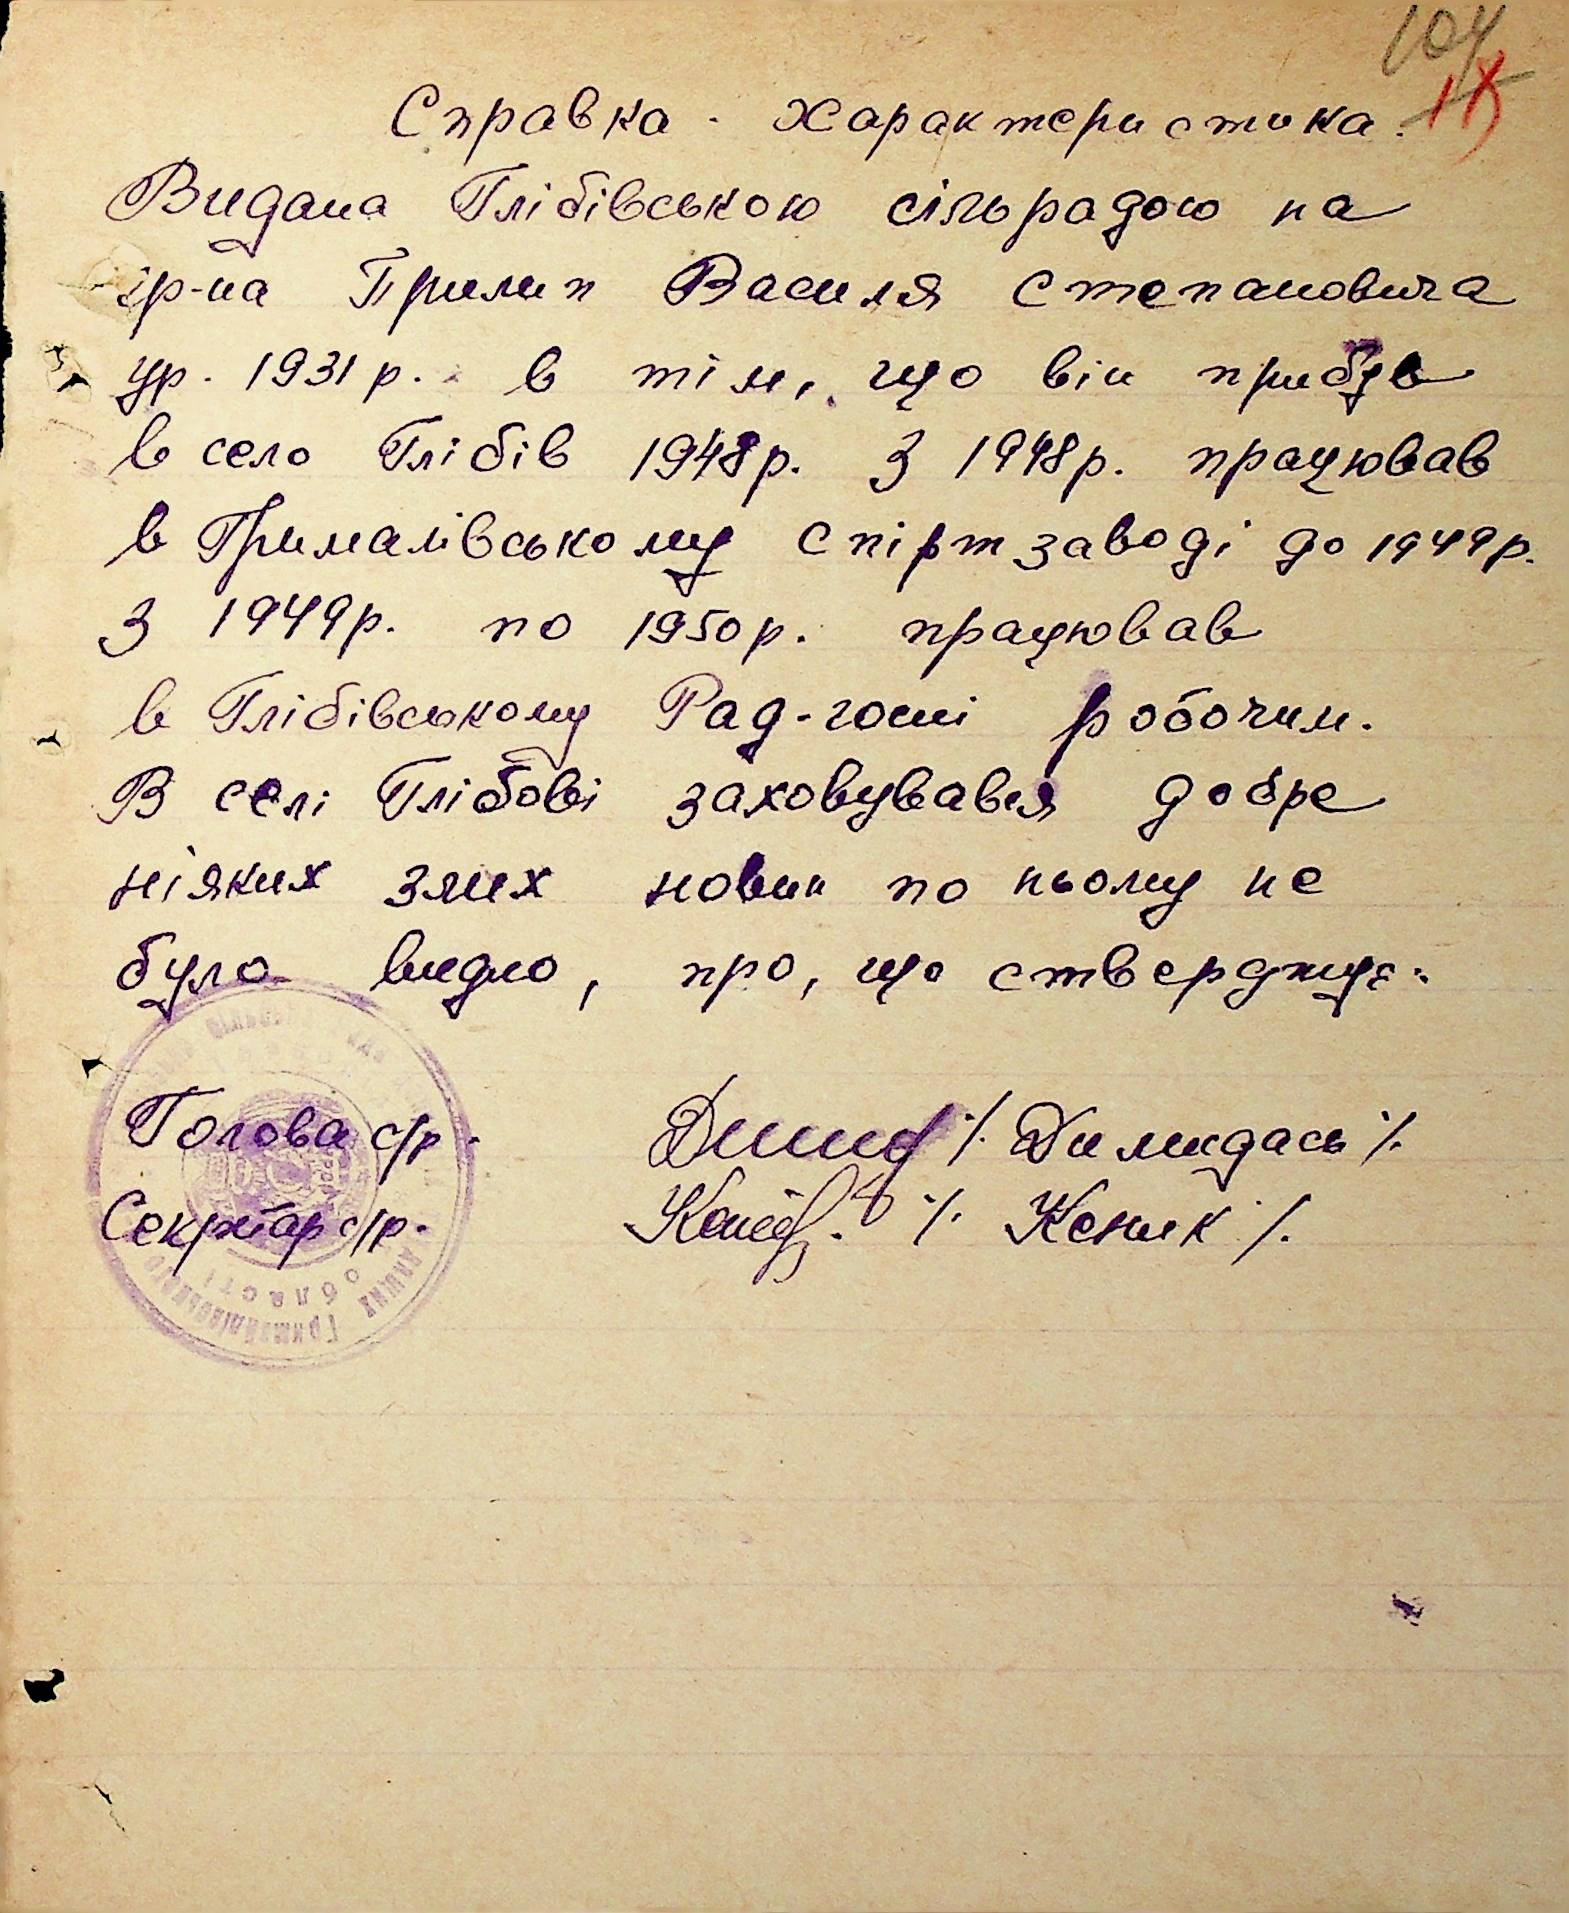 104
18
Справка - характеристика.
Видана Глібівською сільрадою на
гр-на Прилип Василя Степановича
ур. 1931 р. в тім, що він прибув
в село Глібів 1948 р. З 1948 р. працював
в Грималівському спіртзаводі до 1949 р.
З 1949 р. по 1950 р. працював
в Глібівському Рад-госпі робочим.
В селі Глібові заховувався добре
ніяких злих новин по ньому не
було видно, про, що стверджує.
Голова с/р. /. Димидась /.
Секретар с/р. /. Кеник /.
області
Гримайлівського